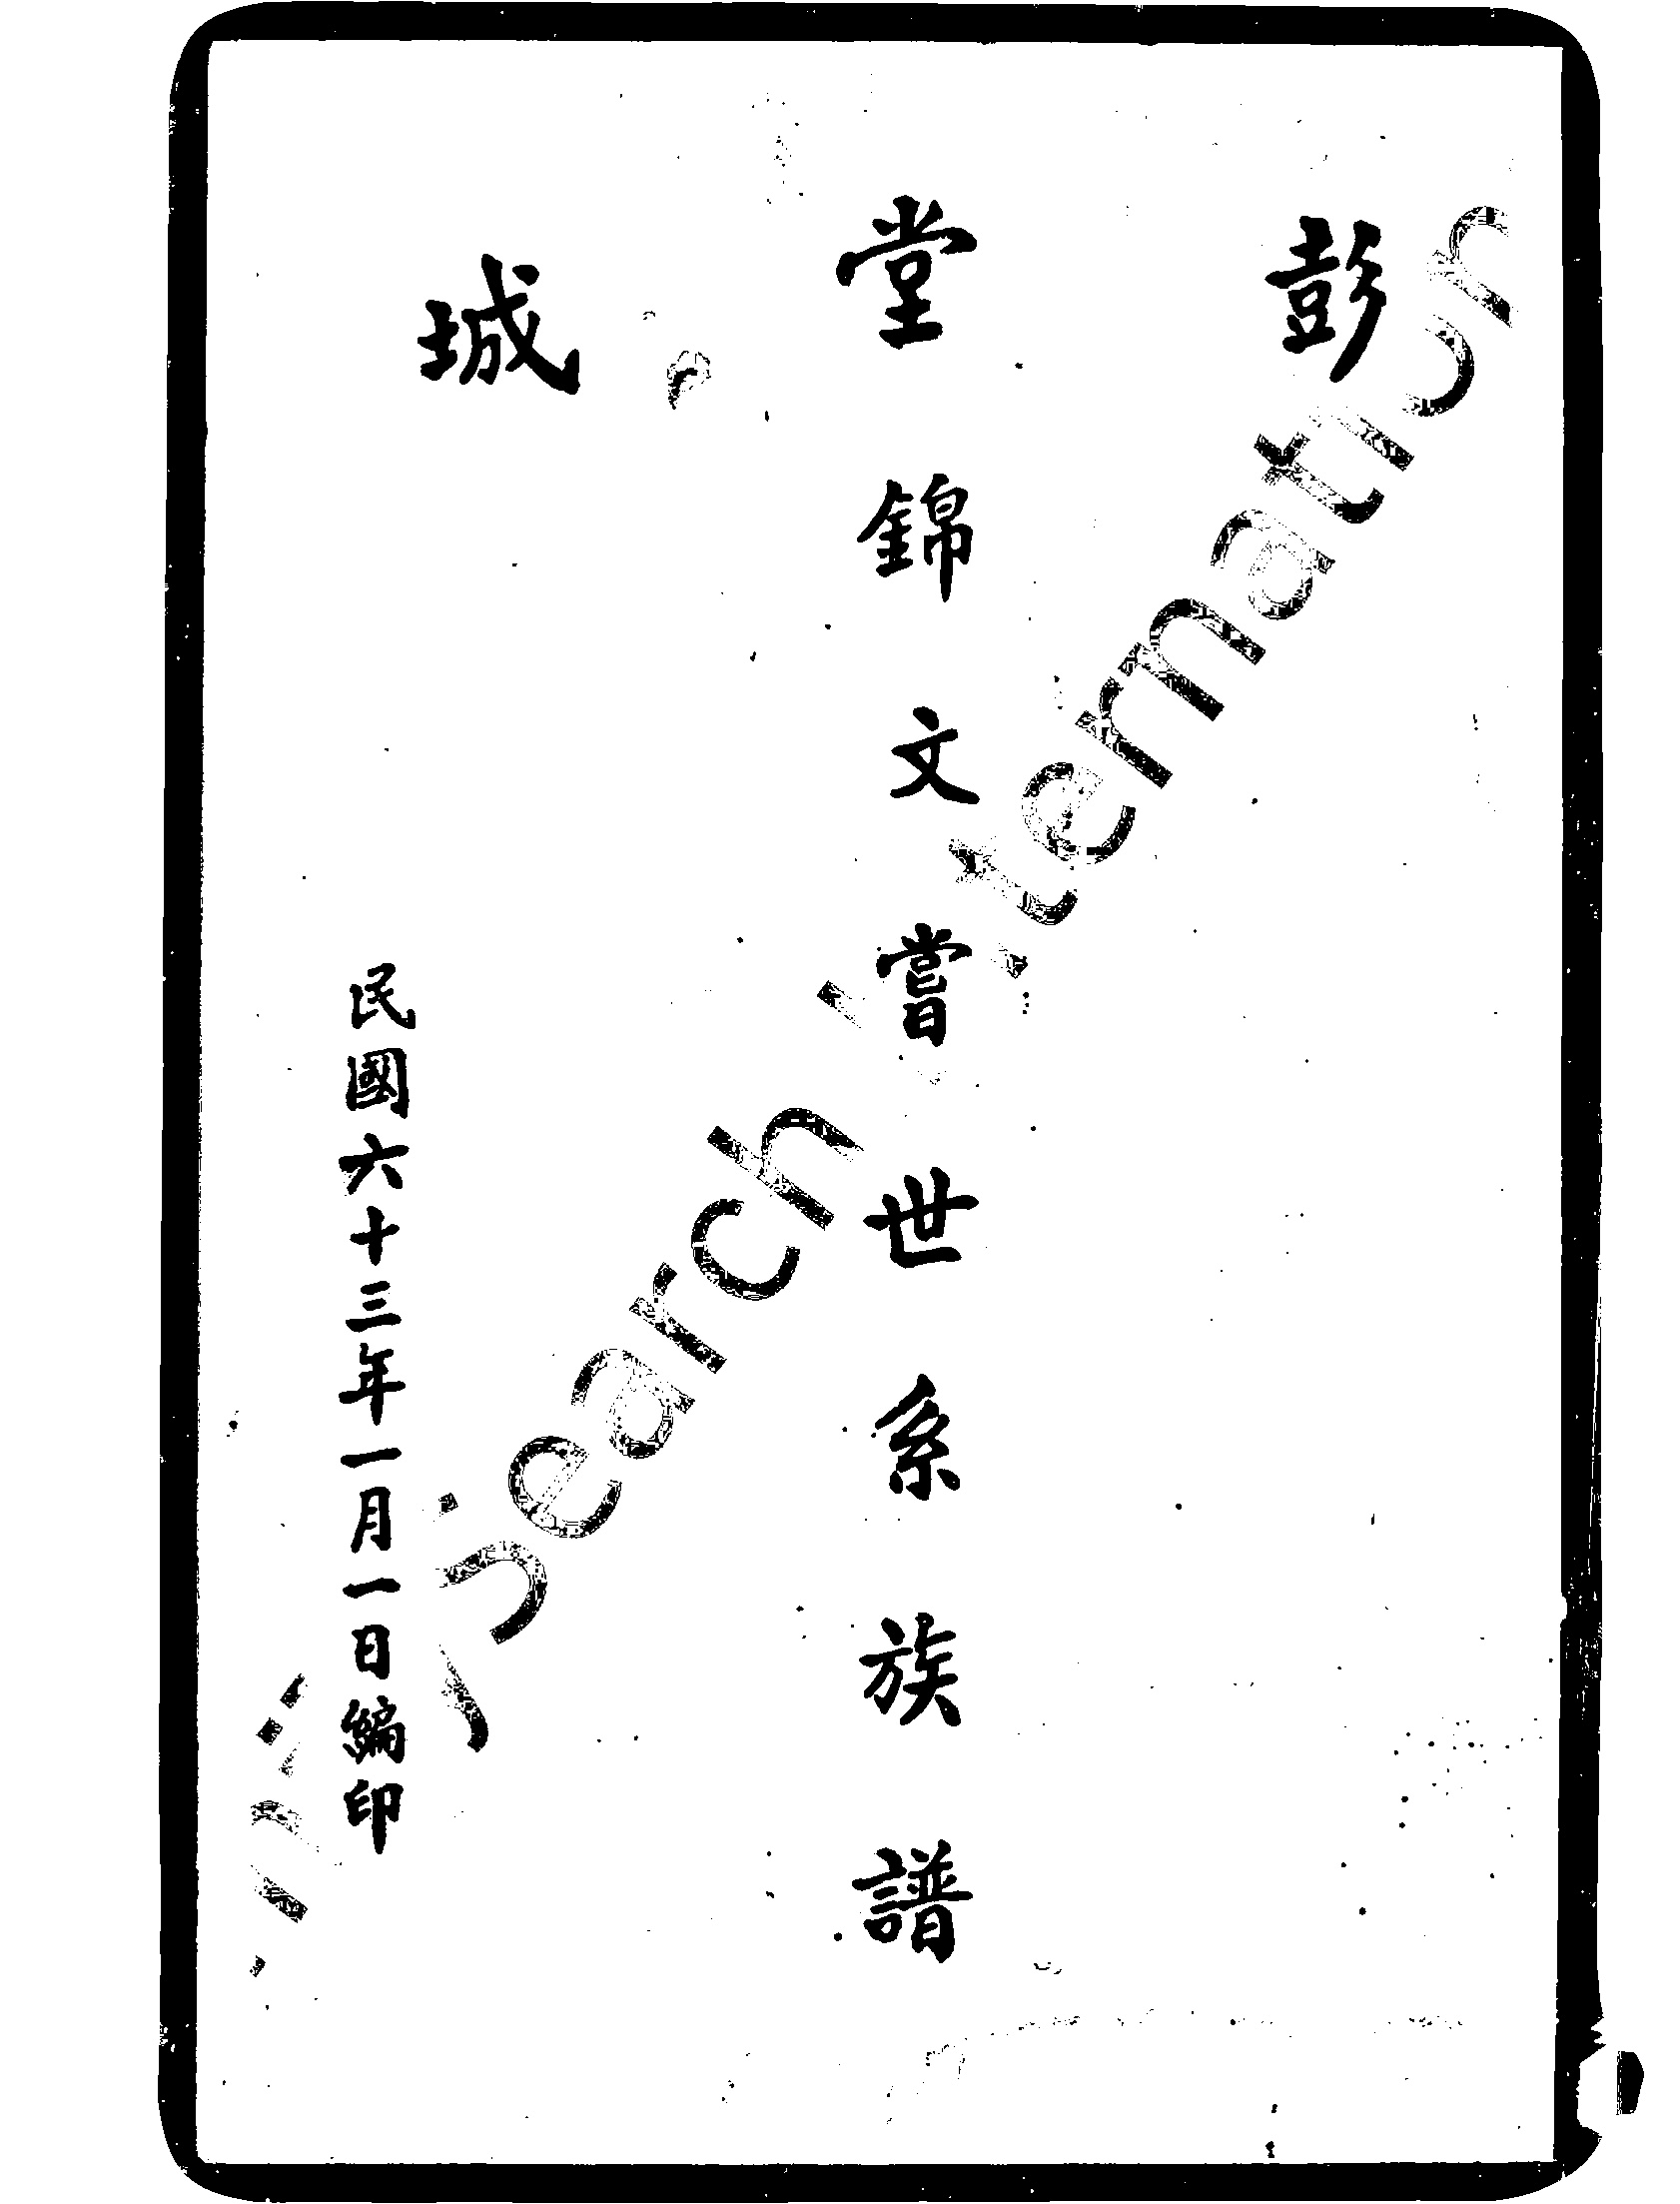 彭
堂錦文嘗世系族譜
城
民國六十三年一月一日編印
search
ternation